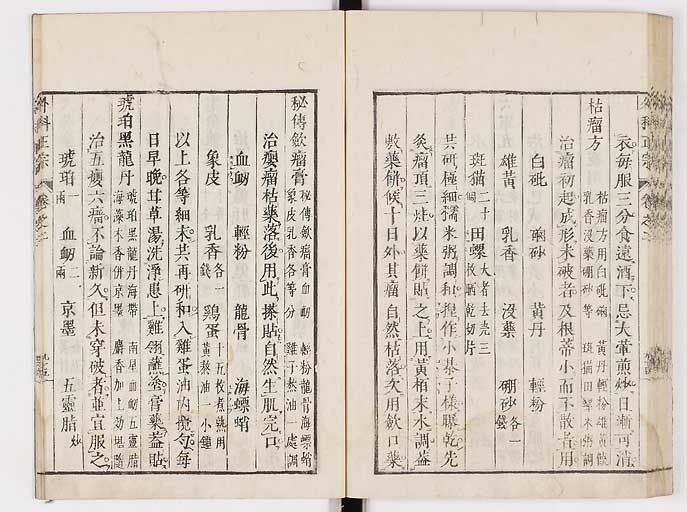 衣每服三分食遠酒下忌大葷煎炒日漸可消
枯瘤方 枯瘤方用白砒硇 黃丹輕粉雄黃
乳香沒藥硼砂等 斑猫田螺米粥調
治瘤初起成形未破者及根蒂小而不散者用
白砒 硇砂 黃丹 輕粉
雄黃 乳香 沒藥 硼砂各一錢
斑猫二十個 田螺大者去壳三枚晒乾切片
共研極細糯米粥調和捏作小棊子樣曝乾先
灸瘤頂三炷以藥餅貼之上用黃栢末水調蓋
敷藥餅候十日外其瘤自然枯落次用歛口藥
秘傳歛瘤膏 秘傳歛瘤膏血蝎 輕粉龍骨海螵蛸
象皮乳香各等分 雞子熬油一處調
治癭瘤枯藥落後用此搽貼自然生肌完口
血蝎 輕粉 龍骨 海螵蛸
象皮 乳香各一錢 鷄蛋十五枚煮熟用黃熬油一小鍾
以上各等細末共再研和入雞蛋油內攪勻每
日早晚甘草湯洗淨患上雞翎蘸塗膏藥蓋貼
琥珀黑龍丹 琥珀黑龍丹海帶 南星血蝎五靈脂
海藻木香併京墨 麝香加上効堪隨
治五癭六瘤不論新久但未穿破者並宜服之
琥珀一兩 血蝎二兩 京墨 五靈脂炒
外科正宗
卷之二